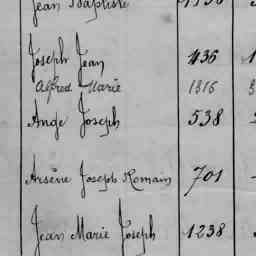 Jean Baptiste
Joseph Jean 436 1
Alfred Marie 1816
Ange Joseph 538
Arsène Joseph Romain 701
Jean Marie Joseph 1238